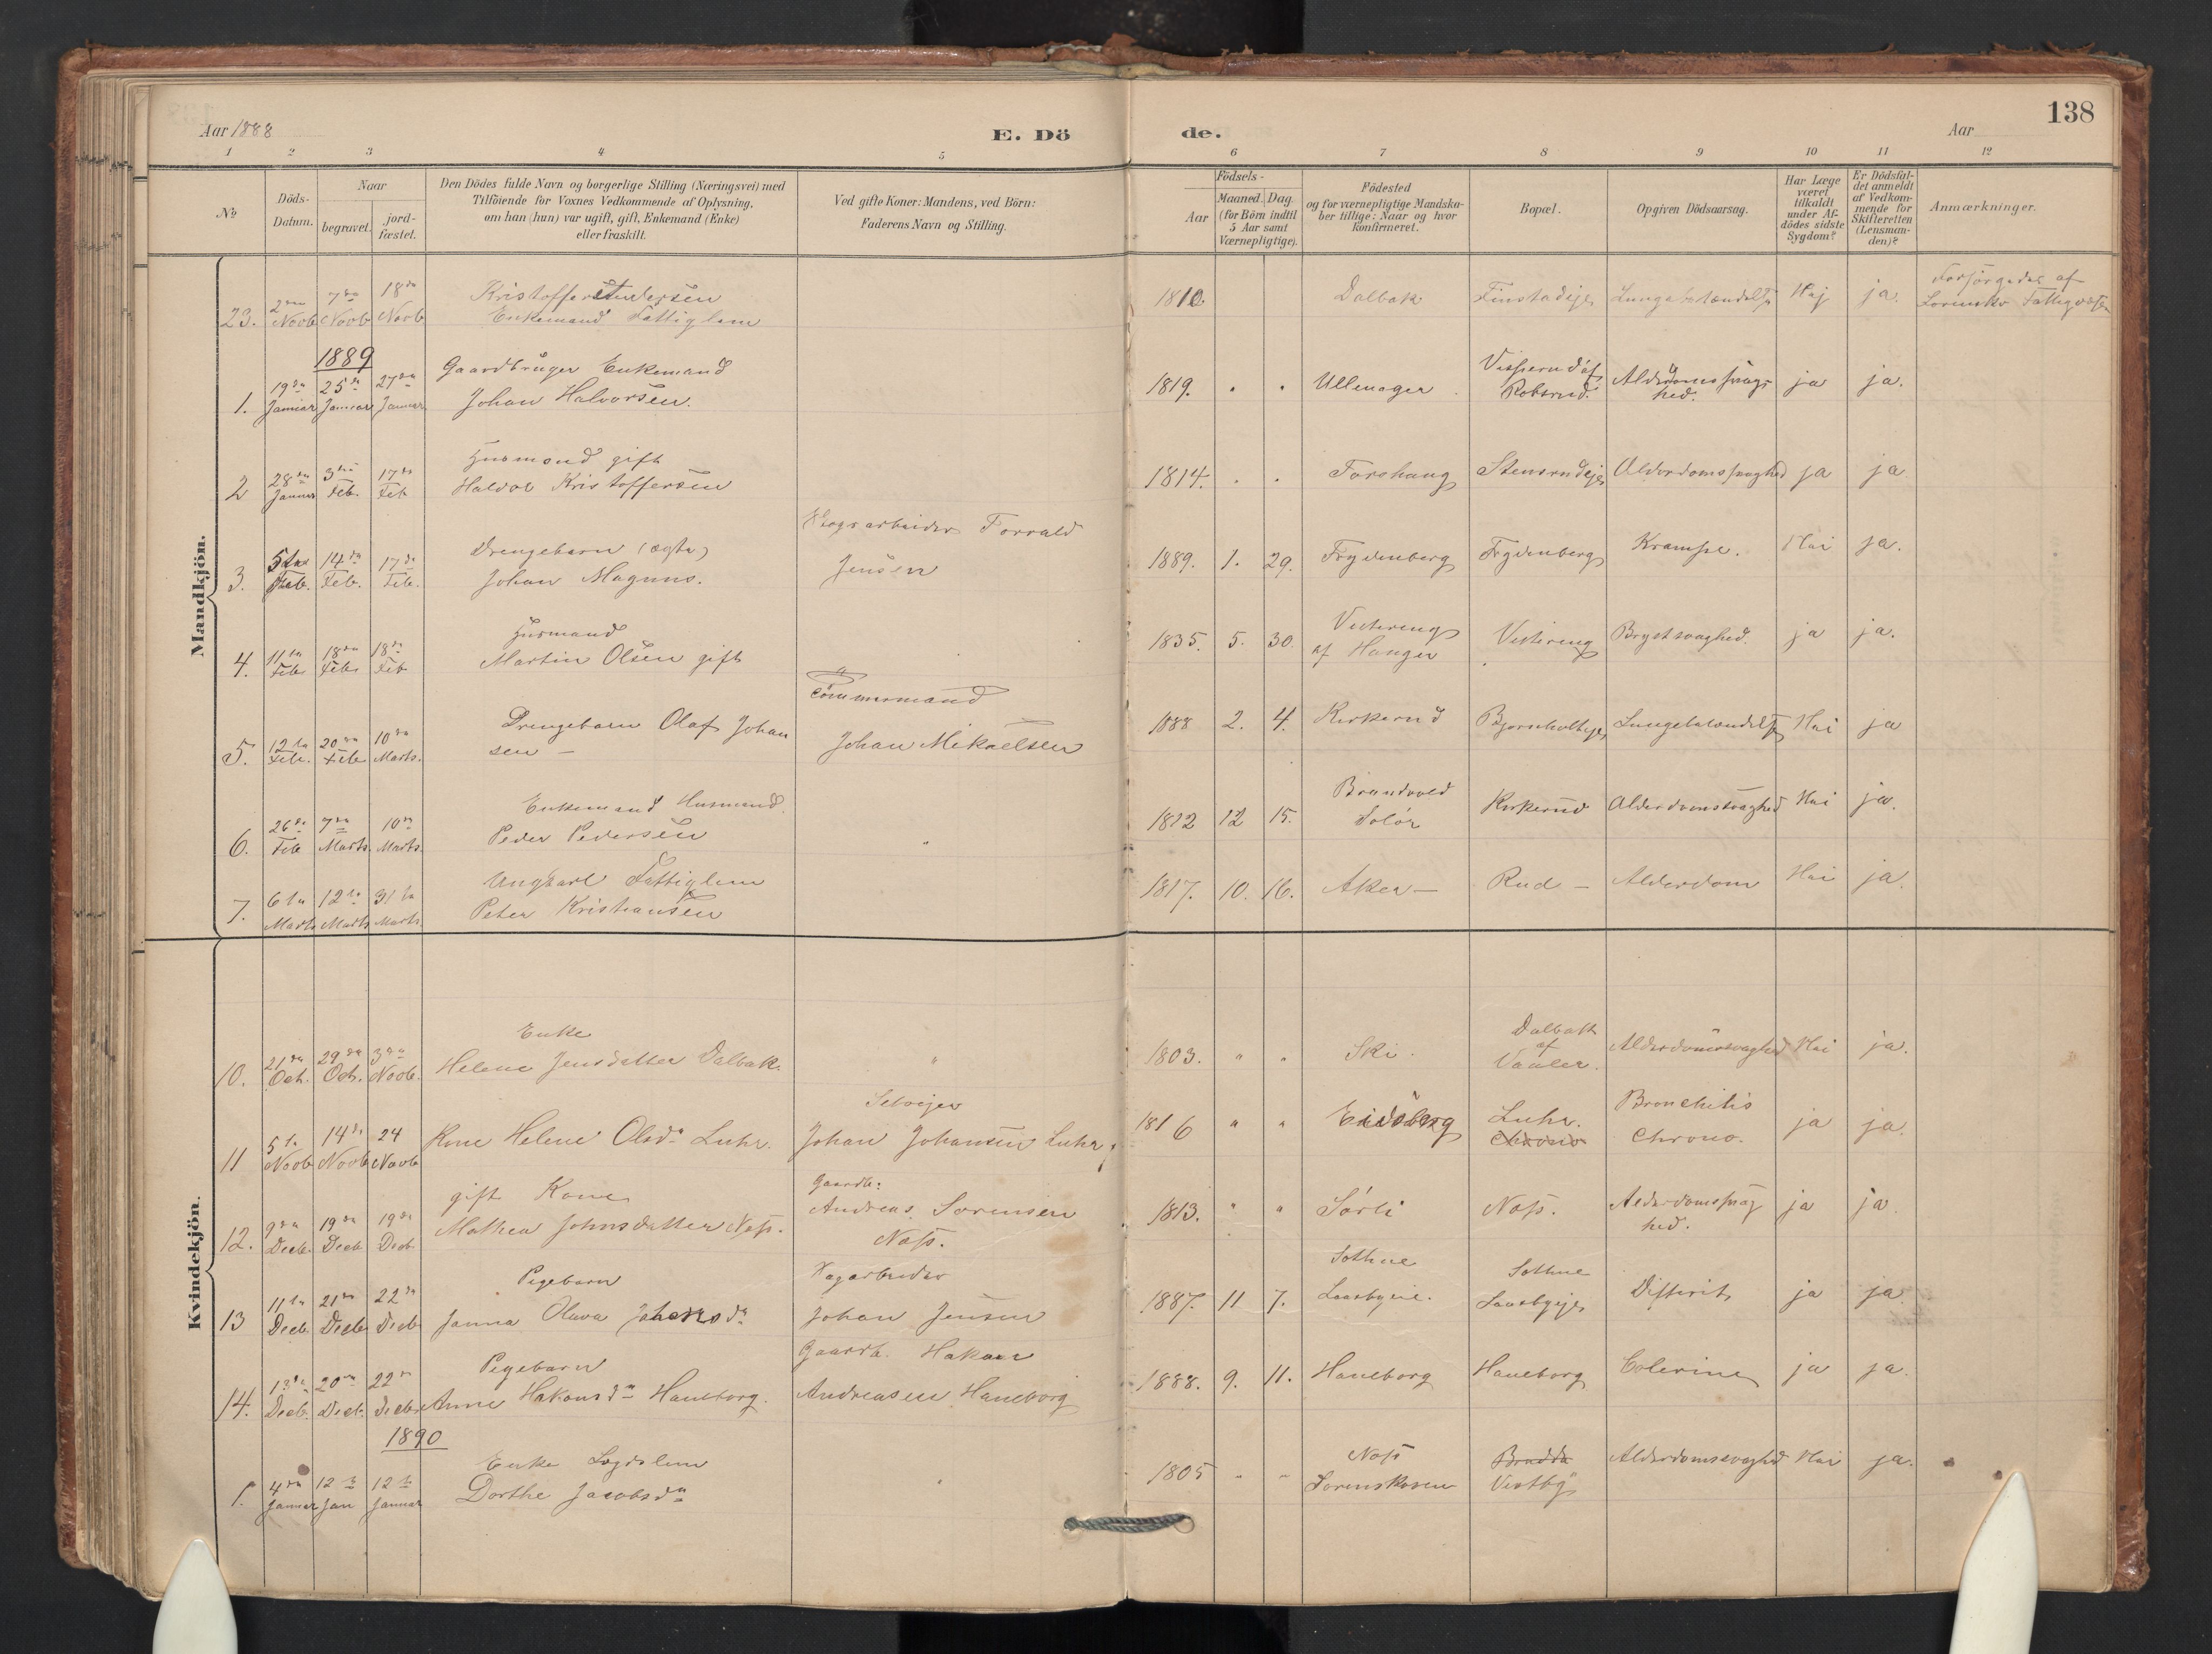 138
Aar 1888
E. Dö
de.
Aar
1 2 3 4 5 6 7 8 9 10 11 12
No
Döds-
Datum.
Naar
begravet.
jord-
fæstet.
Den Dödes fulde Navn og borgerlige Stilling (Næringsvei) med
Tilföiende for Voxnes Vedkommende af Oplysning,
om han (hun) var ugift, gift, Enkemand (Enke)
eller fraskilt.
Ved gifte Koner: Mandens, ved Börn:
Faderens Navn og Stilling.
Födsels-
Aar
Maaned. Dag.
(for Börn indtil
5 Aar samt
Værnepligtige).
Födested
og for værnepligtige Mandska-
ber tillige: Naar og hvor
konfirmeret.
Bopæl.
Opgiven Dödsaarsag.
Har Læge
været
tilkaldt
under Af-
dödes sidste
Sygdom?
Er Dödsfal-
det anmeldt
af Vedkom-
mende for
Skifteretten
(Lensman-
den)?
Anmærkninger.
Mandkjön.
23. 2den Novb 7de Novb 18de Novb
Kristoffer Andersen
Enkemand Fattiglem
1810. Dalbak Finstadeje Lungebetændelse Nej ja.
Forsørgedes af
Lorenskov Fattigvæsen
1889
1. 19de Januar 25de Januar 27de Januar
Gaardbruger Enkemand
Johan Halvorsen.
1819. " " Ullensager
Robsrud.
Alderdomssvag-
hed. ja ja.
2 28de Januar 3die Feb. 17de Feb
Husmand gift
Halvor Kristoffersen
1814. " " Torshaug Stensrudeje Alderdomssvaghed ja ja
3. 5te Feb. 14de Feb. 17de Feb.
Drengebarn (ægte)
Johan Magnus.
Torvald
Jensen
1889. 1. 29. Frydenberg Frydenberg Krampe. Nei ja.
4. 11te Feb 18de Feb 18de Feb
Husmand
Martin Olsen gift
"
1835. 5. 30.
Vestereng
af Hauger
Vestereng Brystsvaghed. ja ja.
5. 12te Feb. 20de Feb 10de Marts.
Drengebarn Olaf Johan
sen –
Tömmermand
Johan Mikaelsen
1888 2. 4. Kirkerud Bjørnholteje Lungebetændelse Nei ja
6. 26de Feb 7de Marts. 10de Marts.
Enkemand Husmand.
Peder Pedersen
"
1812 12 15.
Brandvold
Solör
Kirkerud Alderdomssvaghed Nei ja.
7. 6te Marts 12te Marts 31te Marts
Ungkarl Fattiglem
Peter Kristiansen
1817. 10. 16. Aker – Rud – Alderdom Nei ja.
Kvindekjön.
10. 21de Oct. 29de Oct. 3die Novb.
Enke
Helene Jensdatter Dalbak.
"
1803. " " Ski.
Dalbakk
af
Vaaler.
Alderdomssvaghed Nei ja.
11 5te Novb 14de Novb 24 Novb
Kone Helene Olsdr Luhr.
Selvejer
Johan Johansen Luhr
1816 " " Eidsberg
Luhr.
Chrono
Bronchitis
Chrono. ja ja.
12. 9de Decb. 19de Decb 19de Decb
gift Kone
Mathea Johnsdatter Nass.
Gaardb:
Andreas Sorensen
Nass.
1813. " " Sörli Nass.
Alderdomssvag
hed. ja ja.
13 11te Decb. 21de Decb 22de Decb
Pigebarn
Janna Olava Johansdr
Johan Jensen
1887. 11 7.
Sothue
Laasbyeie.
Sothue
Laasbyeje
Difterit ja ja
14. 13de Decb. 20de Decb. 22de Decbr
Pigebarn
Anne Hakonsdr Haneborg.
Gaardb. Hakon
Andreasen Haneborg
1888. 9. 11. Haneborg Haneborg Colerine ja ja.
1890
1. 4de Januar 12te Jan 12te Januar
Enke Lægdslem
Dorthe Jacobsdr
"
1805 " "
Nass
Lorenskoven
Brudda
Vestby
Alderdomssvaghed Nei ja.